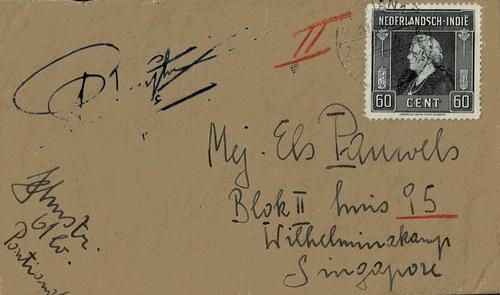 II
NEDERLANDSCH-INDIË
60 CENT 60
Mej. Els Pauwels
Blok II huis 95
Wilhelminakamp
Singapore